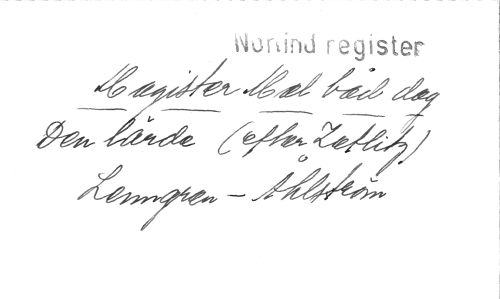 Norlind register
Magister Mal båd dag
Den lärde (efter Zetlitz)
Lenngren - Ahlström